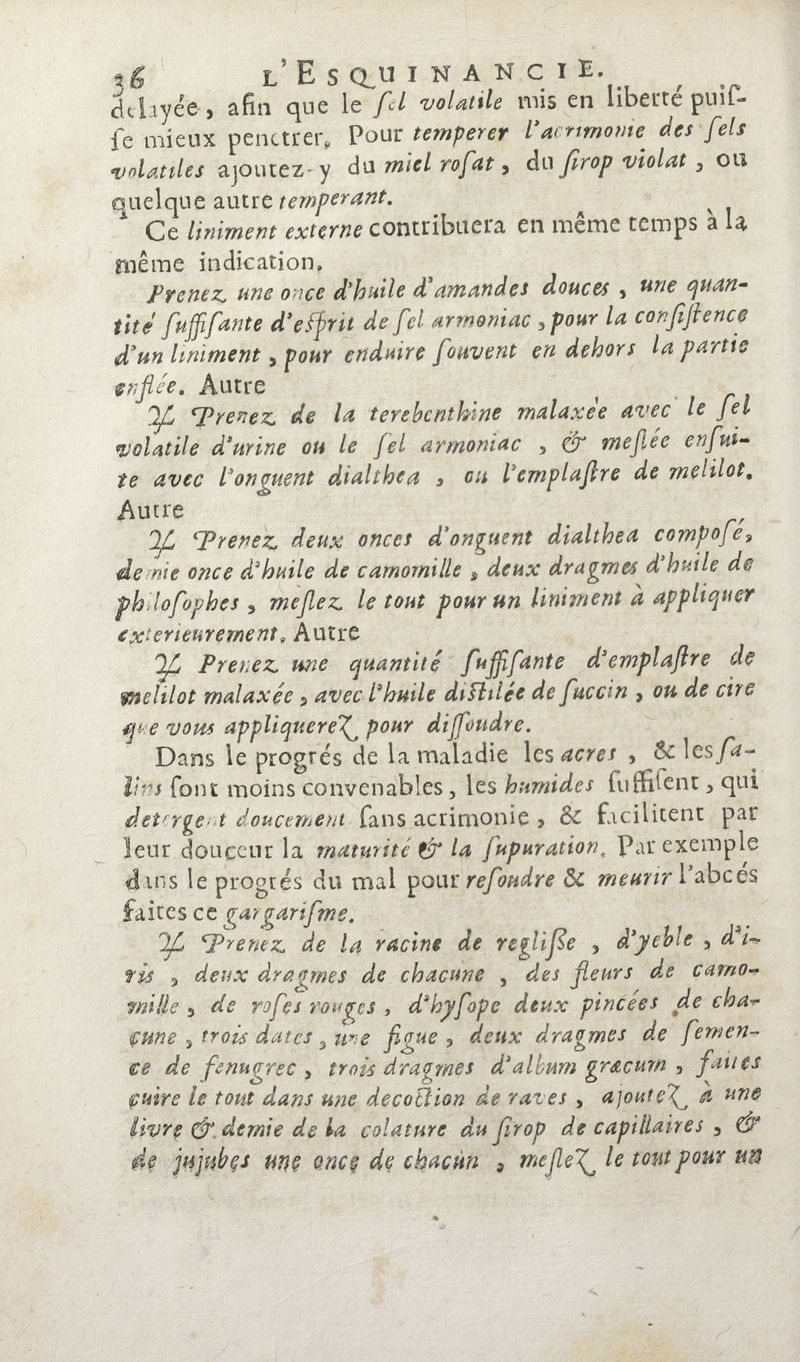 36 L'ESQUINANCIE.
delayée, afin que le ſel volatile mis en liberté puiſ-
ſe mieux penetrer, Pour temperer l'acrimonie des ſels
volatiles ajoutez-y du miel roſat, du ſirop violat, ou
quelque autre temperant.
Ce liniment externe contribuera en même temps à la
même indication.
Prenez une once d'huile d'amandes douces, une quan-
tité ſuffiſante d'eſprit de ſel armoniac, pour la conſiſtence
d'un liniment, pour enduire ſouvent en dehors la partie
enflée. Autre
℞ Prenez de la terebenthine malaxée avec le ſel
volatile d'urine ou le ſel armoniac, & meſlée enſui-
te avec l'onguent dialthea, ou l'emplaſtre de melilot.
Autre
℞ Prenez deux onces d'onguent dialthea compoſé,
demie once d'huile de camomille, deux dragmes d'huile de
philoſophes, meſlez le tout pour un liniment à appliquer
exterieurement. Autre
℞ Prenez une quantité ſuffiſante d'emplaſtre de
melilot malaxée, avec l'huile diſtilée de ſuccin, ou de cire
que vous appliquerez pour diſſoudre.
Dans le progrés de la maladie les acres, & les ſa-
lins ſont moins convenables, les humides ſuffiſent, qui
detergent doucement ſans acrimonie, & facilitent par
leur douceur la maturité & la ſupuration. Par exemple
dans le progrés du mal pour reſoudre & meurir l'abcés
faites ce gargariſme.
℞ Prenez de la racine de regliſſe, d'yeble, d'i-
ris, deux dragmes de chacune, des fleurs de camo-
mille, de roſes rouges, d'hyſope deux pincées de cha-
cune, trois dates, une figue, deux dragmes de ſemen-
ce de fenugrec, trois dragmes d'album græcum, faites
cuire le tout dans une decoction de raves, ajoutez à une
livre & demie de la colature du ſirop de capillaires, &
de jujubes une once de chacun, meſlez le tout pour un